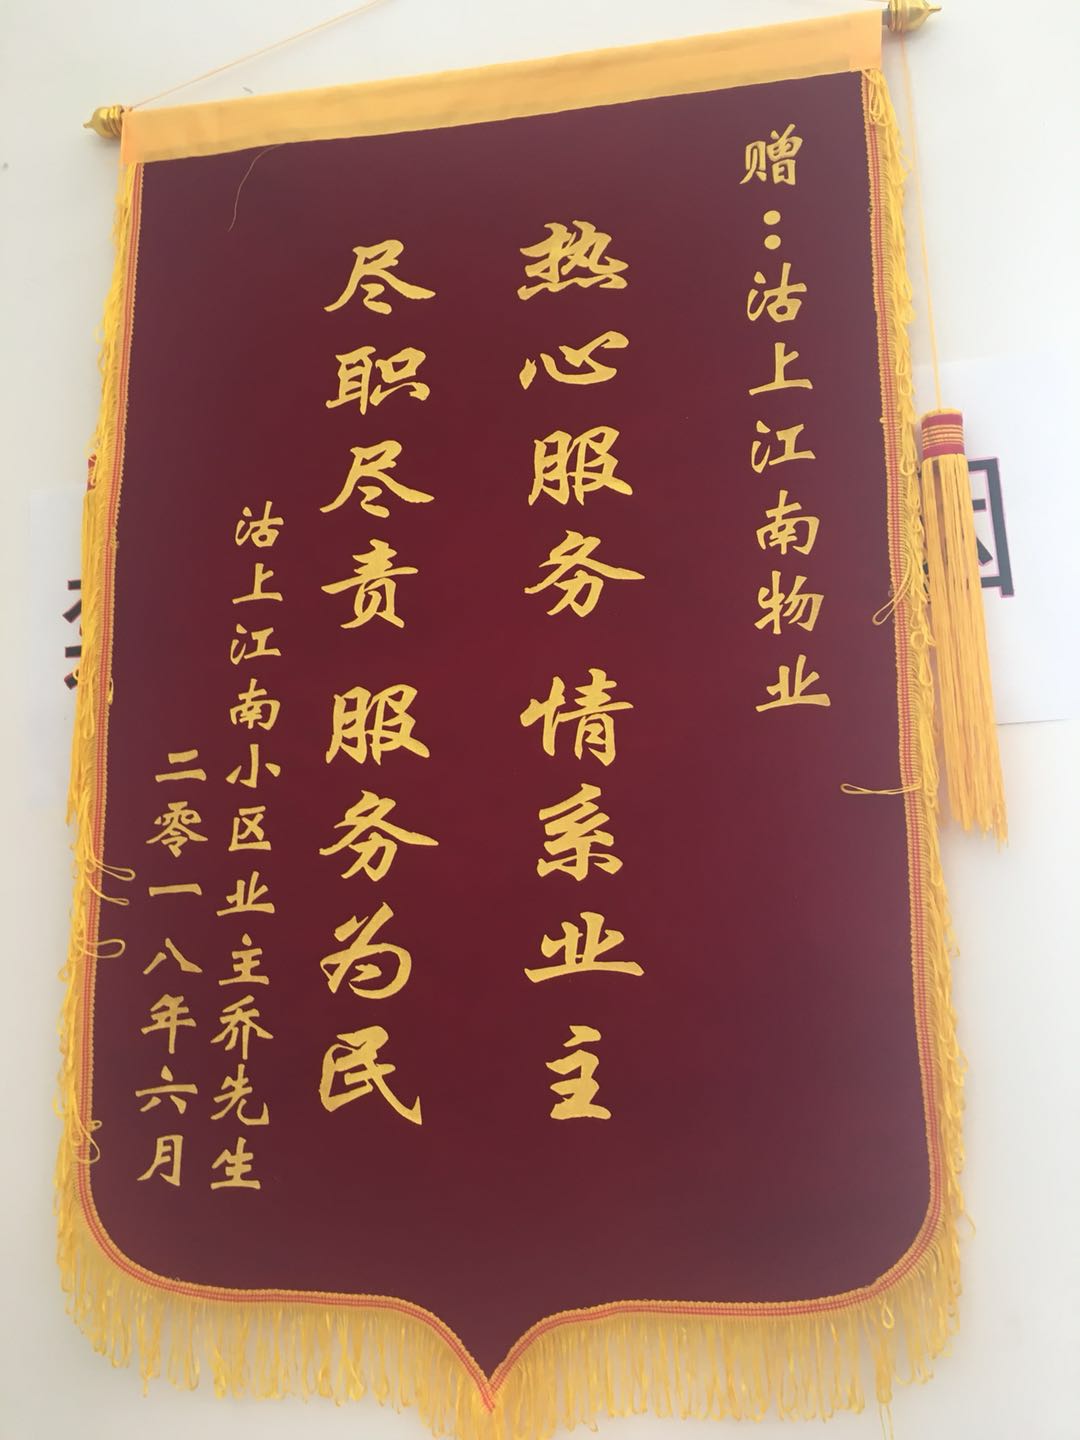 赠：沽上江南物业
热心服务 情系业主
尽职尽责 服务为民
沽上江南小区业主乔先生
二零一八年六月